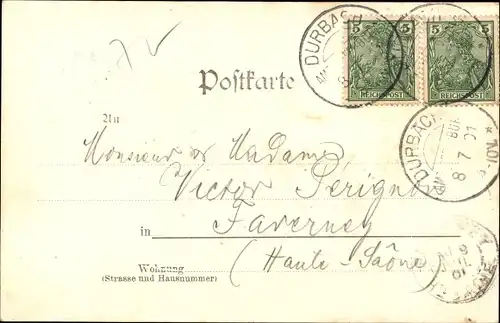 DURBACH
5 5 5 5
REICHSPOST REICHSPOST
Postkarte
DURBACH
8 7 01
An
Monsieur et Madame
Victor Perignon
in Faverney
(Haute-Saône)
Wohnung
(Strasse und Hausnummer)